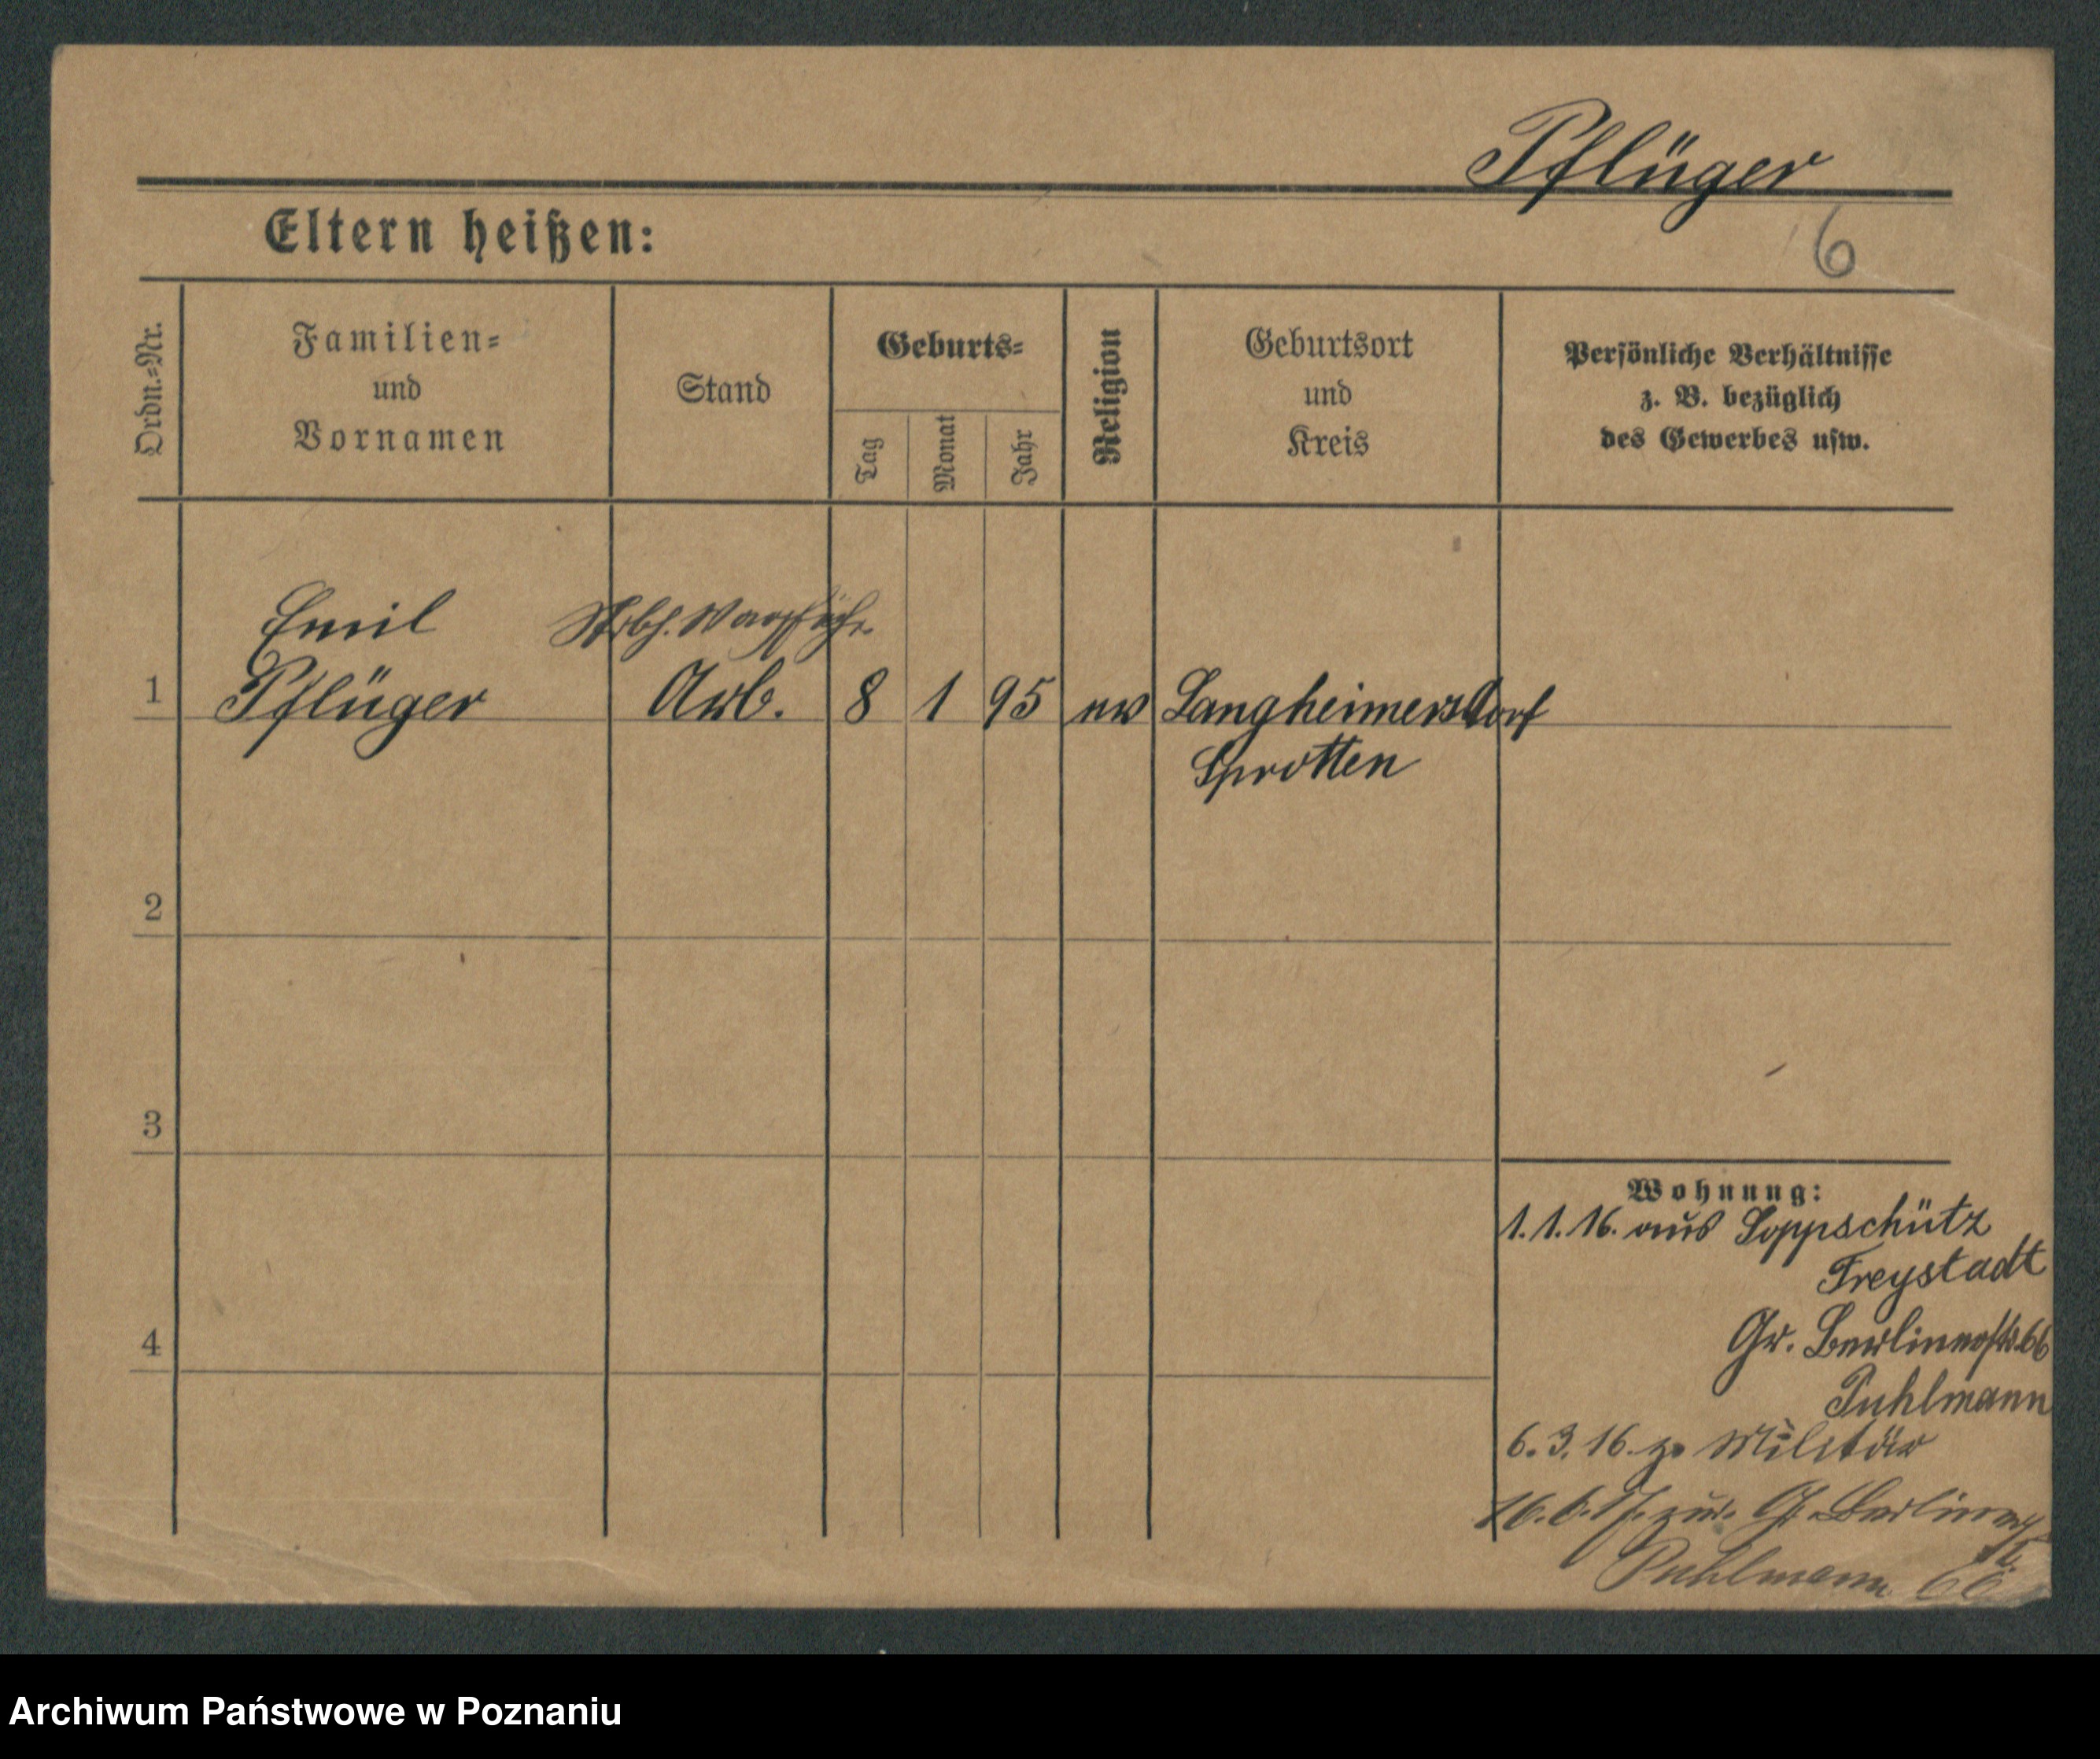 Pflüger
Eltern heißen:
6
Ordn.-Nr.
Familien-
und
Vornamen
Stand
Geburts-
Tag
Monat
Jahr
Religion
Geburtsort
und
Kreis
Persönliche Verhältnisse
z. B. bezüglich
des Gewerbes usw.
Emil
1 Pflüger Arb. 8 1 95 ev Langheimersdorf
Sprotten
2
3
4
Wohnung:
1.1.16. aus Loppschütz
Freystadt
Gr. Berlinerstr. 66
Puhlmann
6.3.16. z. Militär
16.6.17. zur. Gr. Berliner
str.
Puhlmann 66